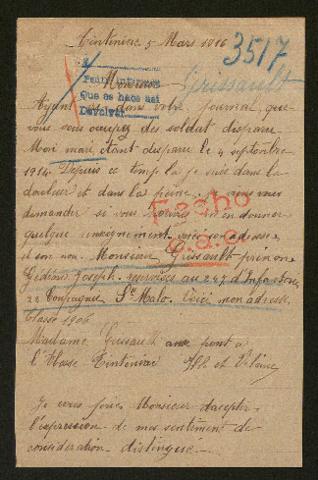 Tinténiac 5 Mars 1916
3517
Monsieur
Grissault
Pedir informes
Que se hace asi
Devolver
Ayant dans votre journal que
vous vous occupez des soldat disparu
Moi mari étant disparu le 4 septembre
1914. Depuis ce temp la je suis dans la
douleur et dans la peine. je vous
demander si vous pouvez m'en donner
quelque renseignement voici son adresse
Fecho
C.a.C.
et son nom. Monsieur Grissault prénom
Joseph. reserviste au 247 d'Infanterie
22 Compagnie St Malo. Voici mon adresse
Classe 1906
Madame Grissault aux pont à
l'Abbesse Tinténiac Ille et Vilaine
Je vous prie Monsieur d'accepter
l'expression de mes sentiment de
considération distingué.